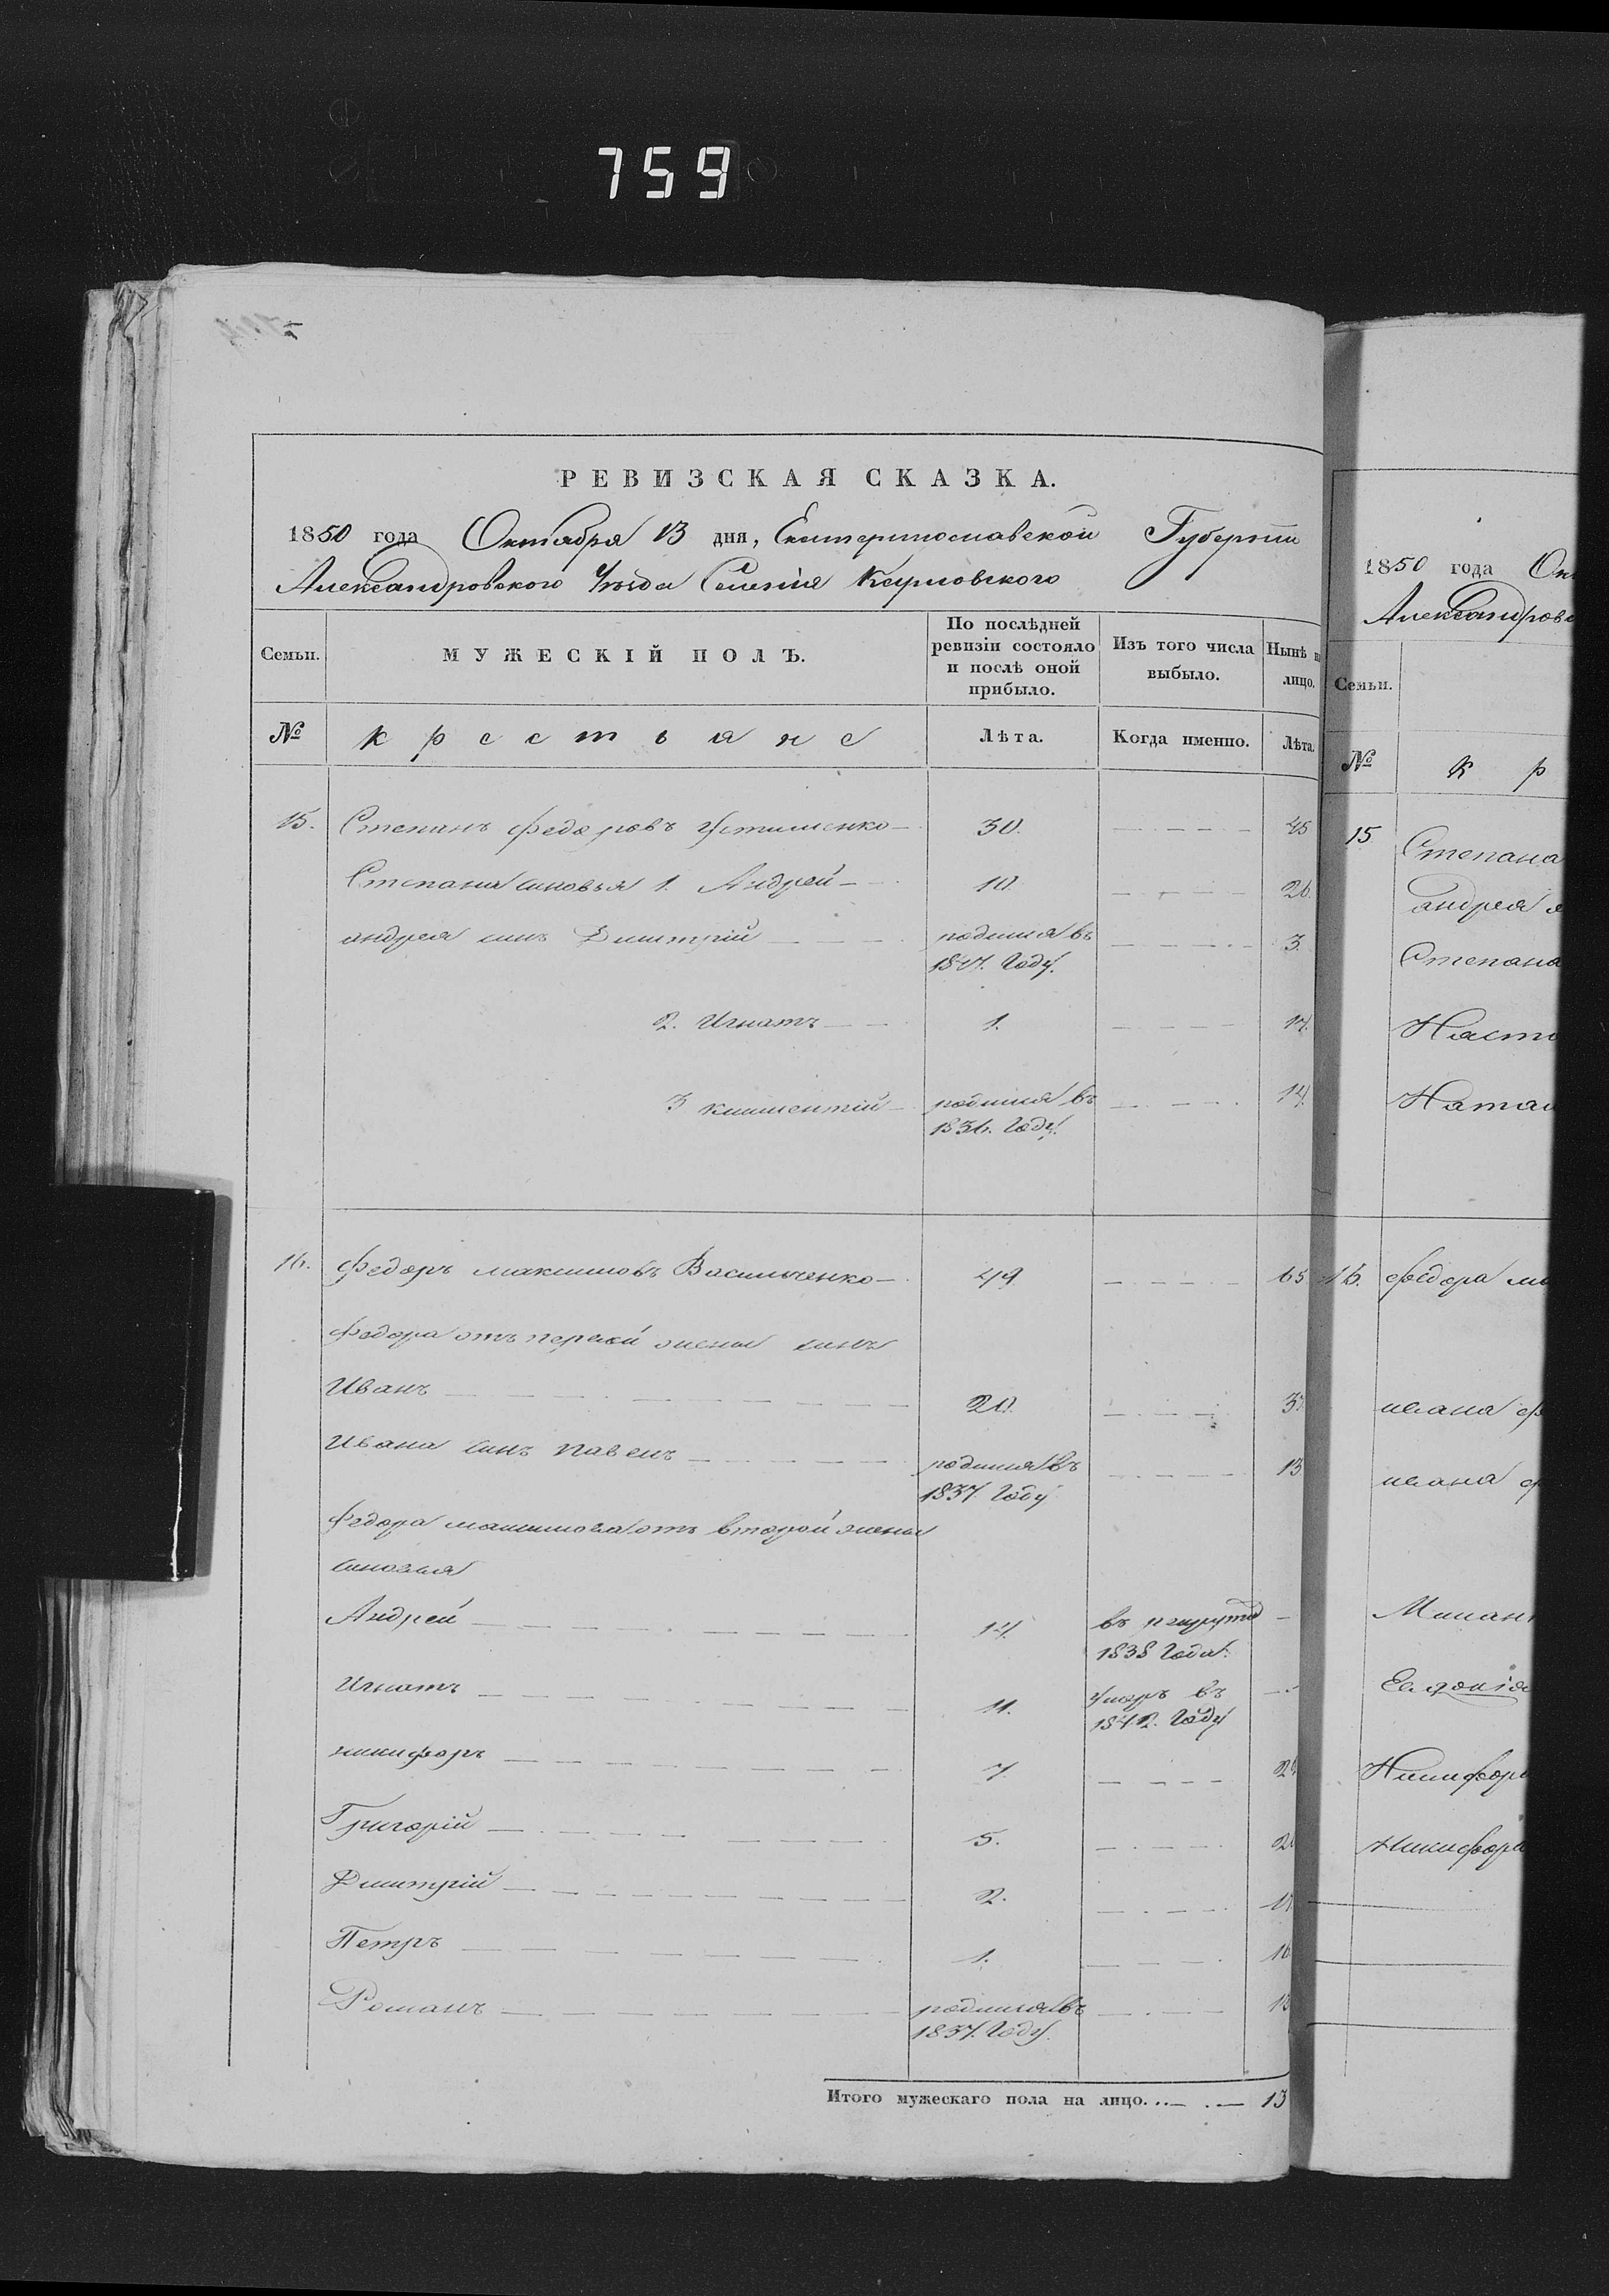 759
РЕВИЗСКАЯ СКАЗКА.
1850 года Октября 13 дня, Екатеринославской Губерніи
Александровского Уѣзда Селенія
Семьи.
МУЖЕСКІЙ ПОЛЪ.
По послѣдней
ревизіи состояло
и послѣ оной
прибыло.
Изъ того числа
выбыло.
Нынѣ н
лицо.
№
крестьяне
Лѣта.
Когда именно.
Лѣта.
15. Степанъ Федоровъ Устименко 30. 45
Степана сыновья 1. Андрей 10. 26.
андрея сынъ Дмитрій родился въ 3.
1847. Году.
2. Игнатъ 1. 17.
3 климентій родился въ 14.
1836. Году.
16. Федоръ максимовъ Васильченко 49 65
Федора отъ первой жены сынъ
Иванъ 20.
Ивана сынъ павелъ родился въ 13
1837. Году
Федора максимова отъ второй жены
сыновья
Андрей 14. въ рекруты
1838 Года.
Игнатъ 11. умеръ въ
1842. Году
никифоръ 7.
Григорій 5.
Дмитрій 2.
Петръ 1. 16
Романъ родился въ 13
1837. Году.
Итого мужескаго пола на лицо... 13
1850 года Ок
Александровс
Семьи.
№
к р
15 Степана
андрея
Степана
Наст
Натал
16. Федора ма
ивана ф
ивана ф
Никифора
Никифора